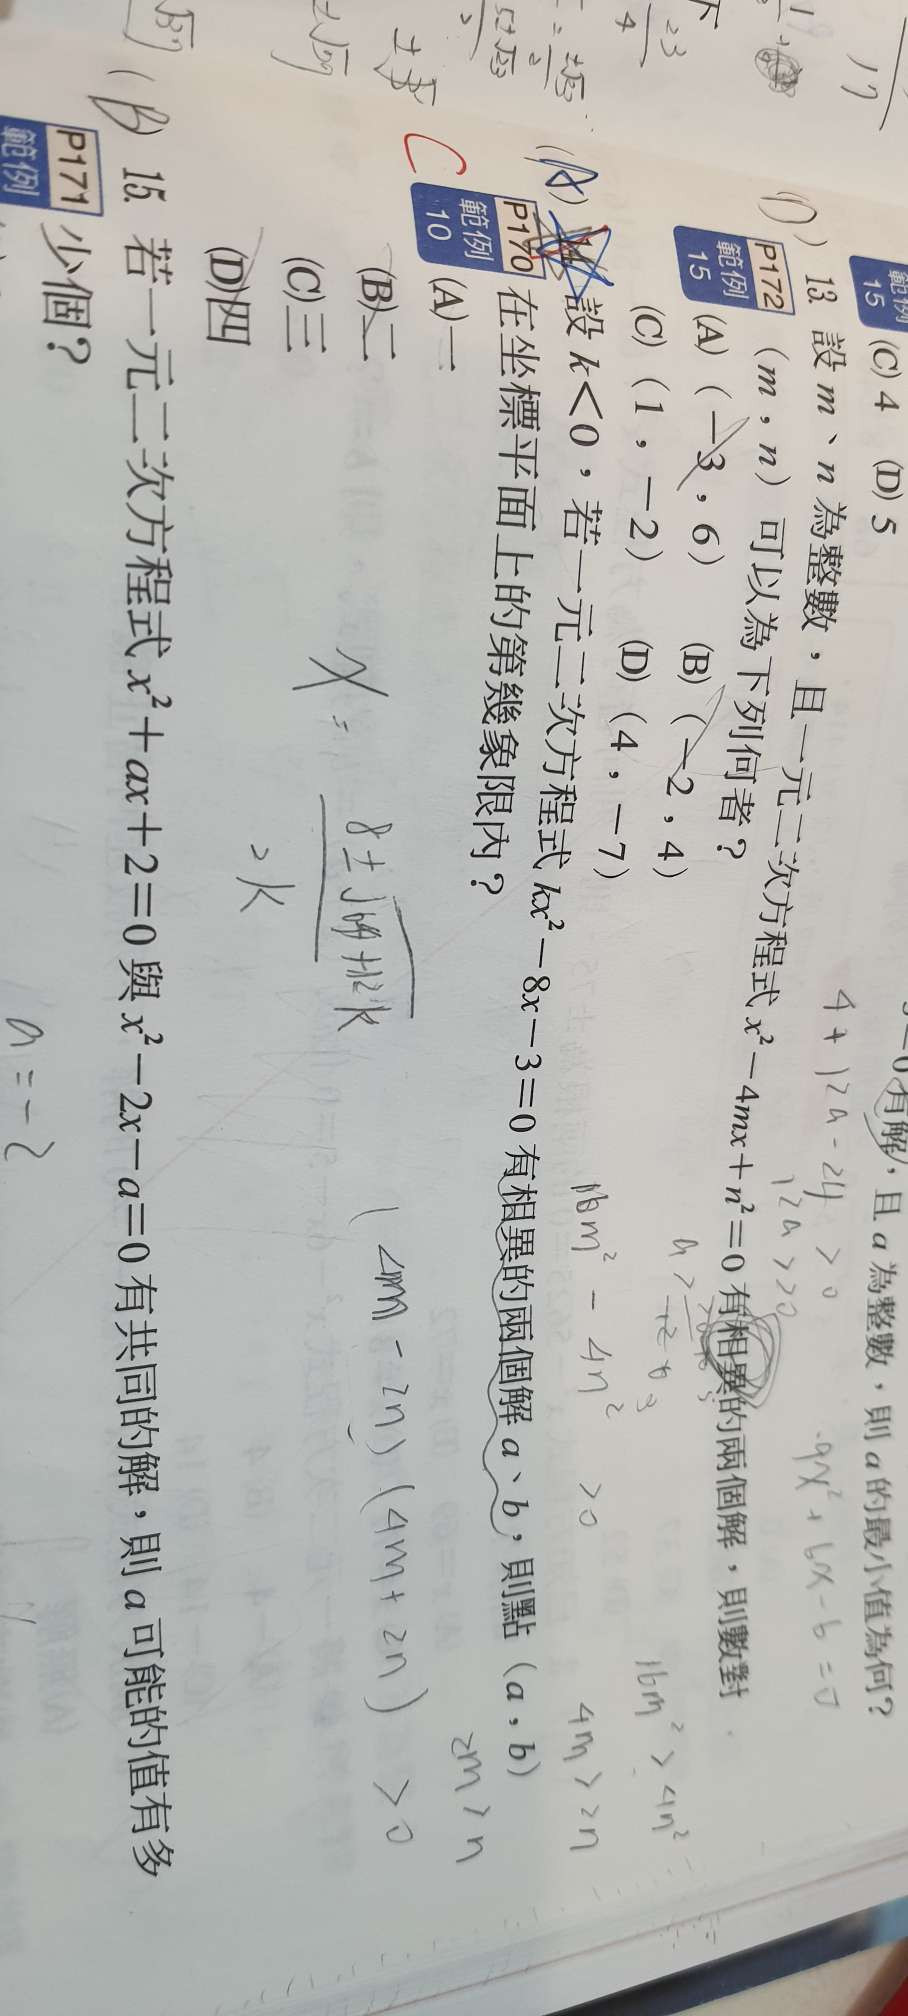 19
17
下
23
4
範例
15
(C) 4 (D) 5
有解，且 a 為整數，則 a 的最小值為何？
4+12a-24>0
12a>20
9x²+6x-6=0
(D) 13. 設 m、n 為整數，且一元二次方程式 x²－4mx＋n²＝0 有相異的兩個解，則數對
P172
範例
15
（m，n）可以為下列何者？
(A)（－3，6） (B)（－2，4）
(C)（1，－2） (D)（4，－7）
16m²-4n²>0
16m²>4n²
4m>2n
2m>n
(4m-2n)(4m+2n)>0
(A) 14. 設 k＜0，若一元二次方程式 kx²－8x－3＝0 有相異的兩個解 a、b，則點（a，b）
C
P170
範例
10
在坐標平面上的第幾象限內？
(A)一
(B)二
(C)三
(D)四
x=
8±√64+12k
2k
(B) 15. 若一元二次方程式 x²＋ax＋2＝0 與 x²－2x－a＝0 有共同的解，則 a 可能的值有多
P171
範例
少個？
a=-2